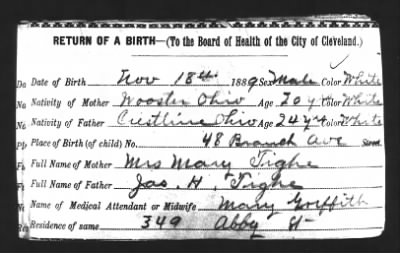 RETURN OF A BIRTH—(To the Board of Health of the City of Cleveland.)
Da Date of Birth Nov 18th 1889 Sex Male Color White
Na Nativity of Mother Wooster Ohio Age 20 yr Color White
Na Nativity of Father Crestline Ohio Age 24 yr Color White
Pl Place of Birth (of child) No. 48 Branch Ave Street
Fu Full Name of Mother Mrs Mary Tighe
Fu Full Name of Father Jas. H. Tighe
Na Name of Medical Attendant or Midwife Mary Griffith
Re Residence of same 349 Abby St